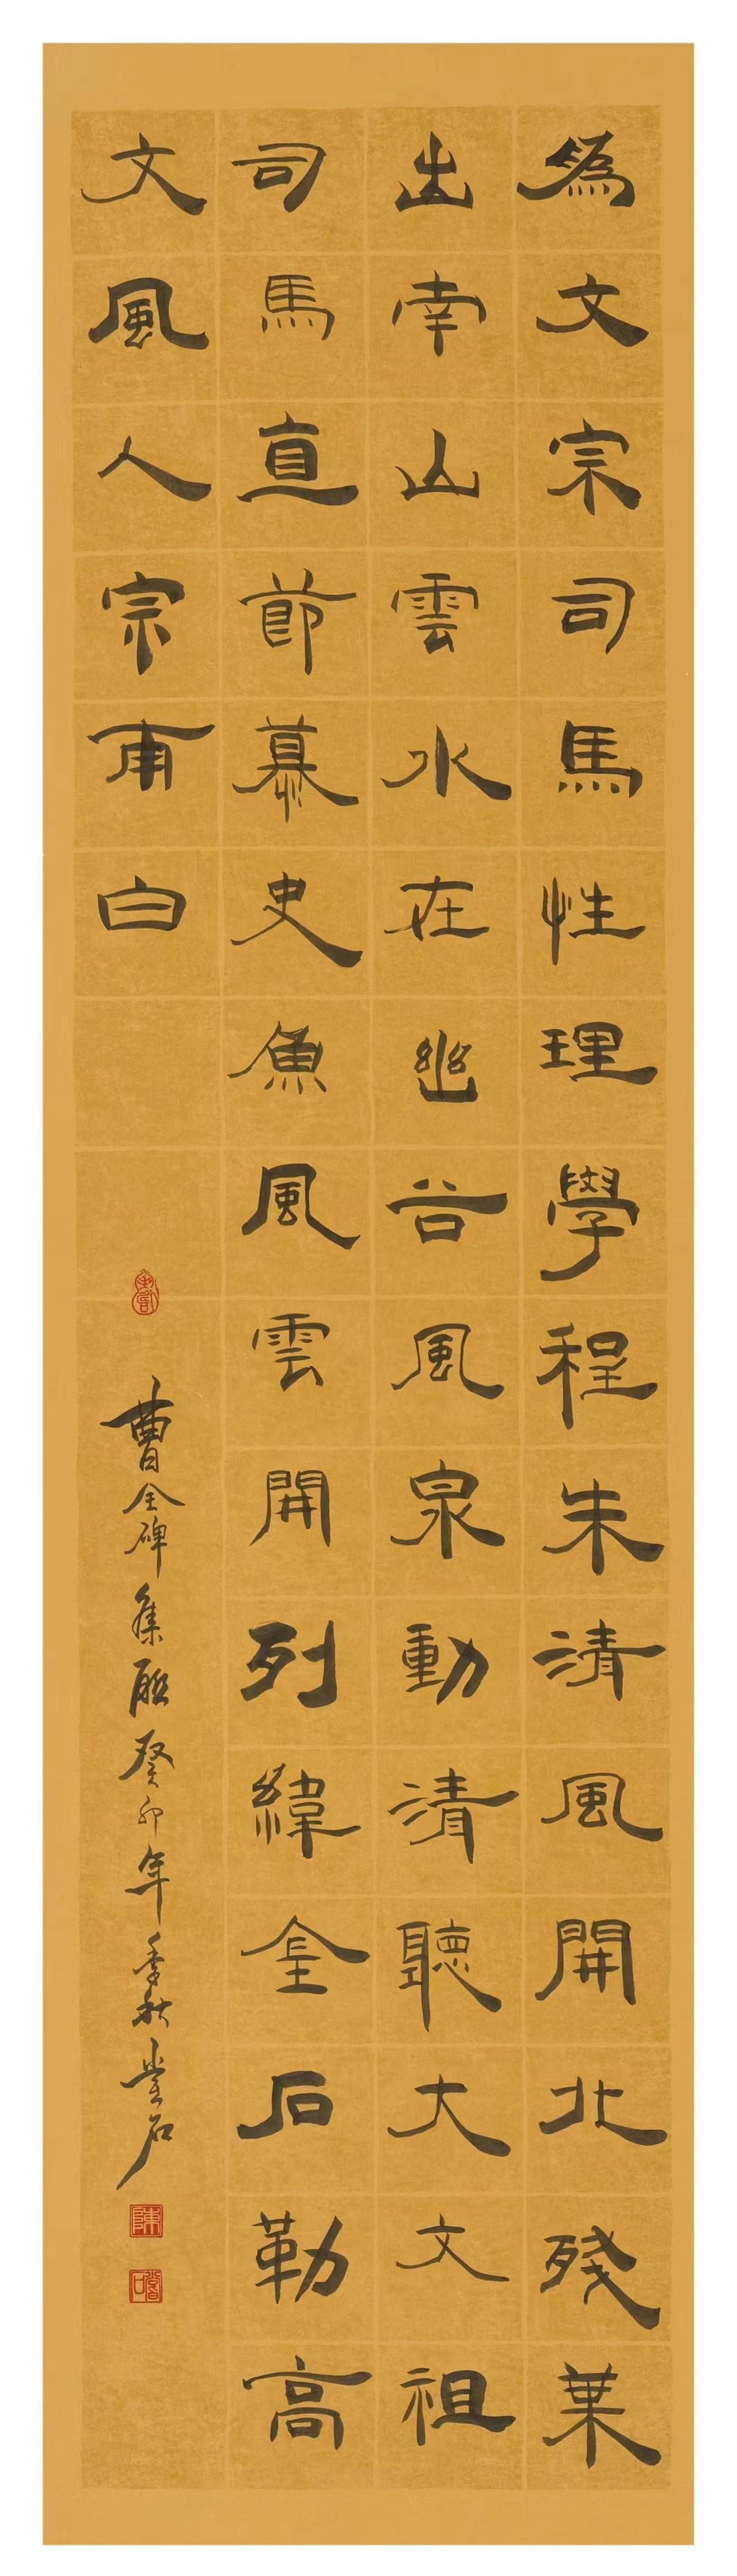 為文宗司馬性理學程朱清風開北殘葉
出南山雲水在幽谷風泉動清聽大文祖
司馬直節慕史魚風雲開列緯金石勒高
文風人宗甫白
曹全碑集聯癸卯年季秋
石